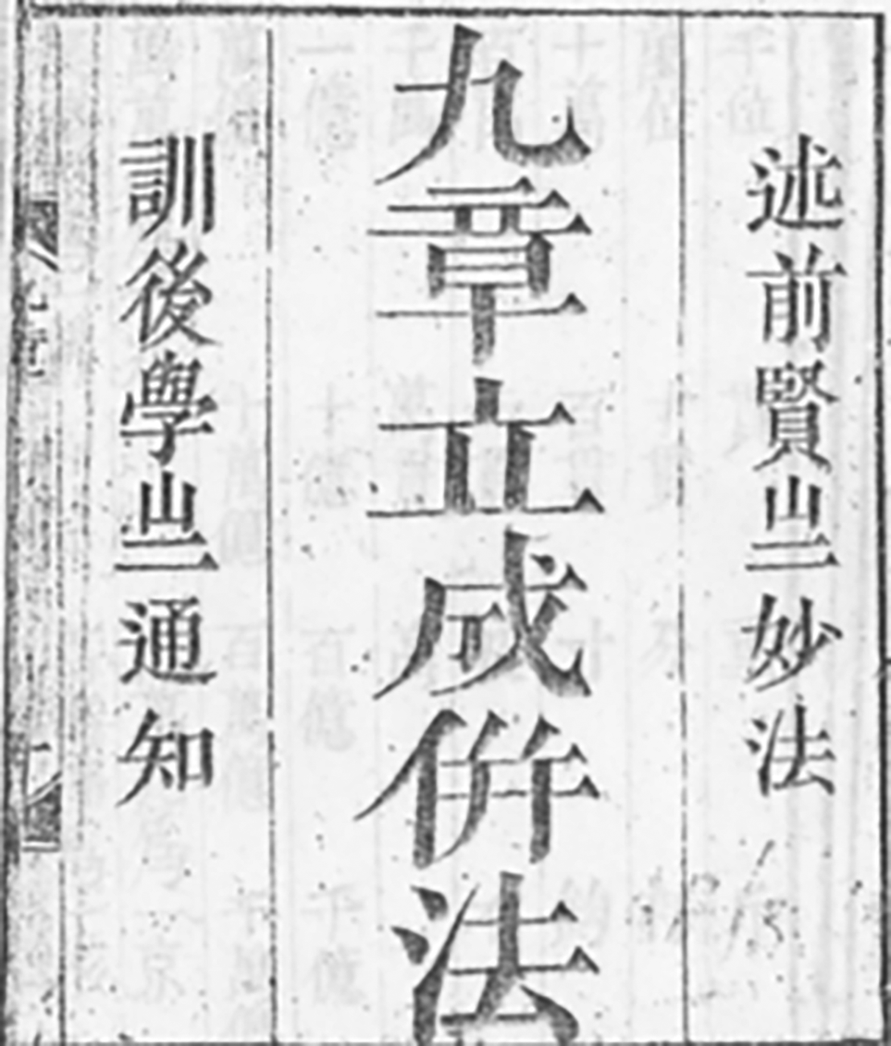 述前賢㞢二妙法
九章立成併法
訓後學㞢二通知